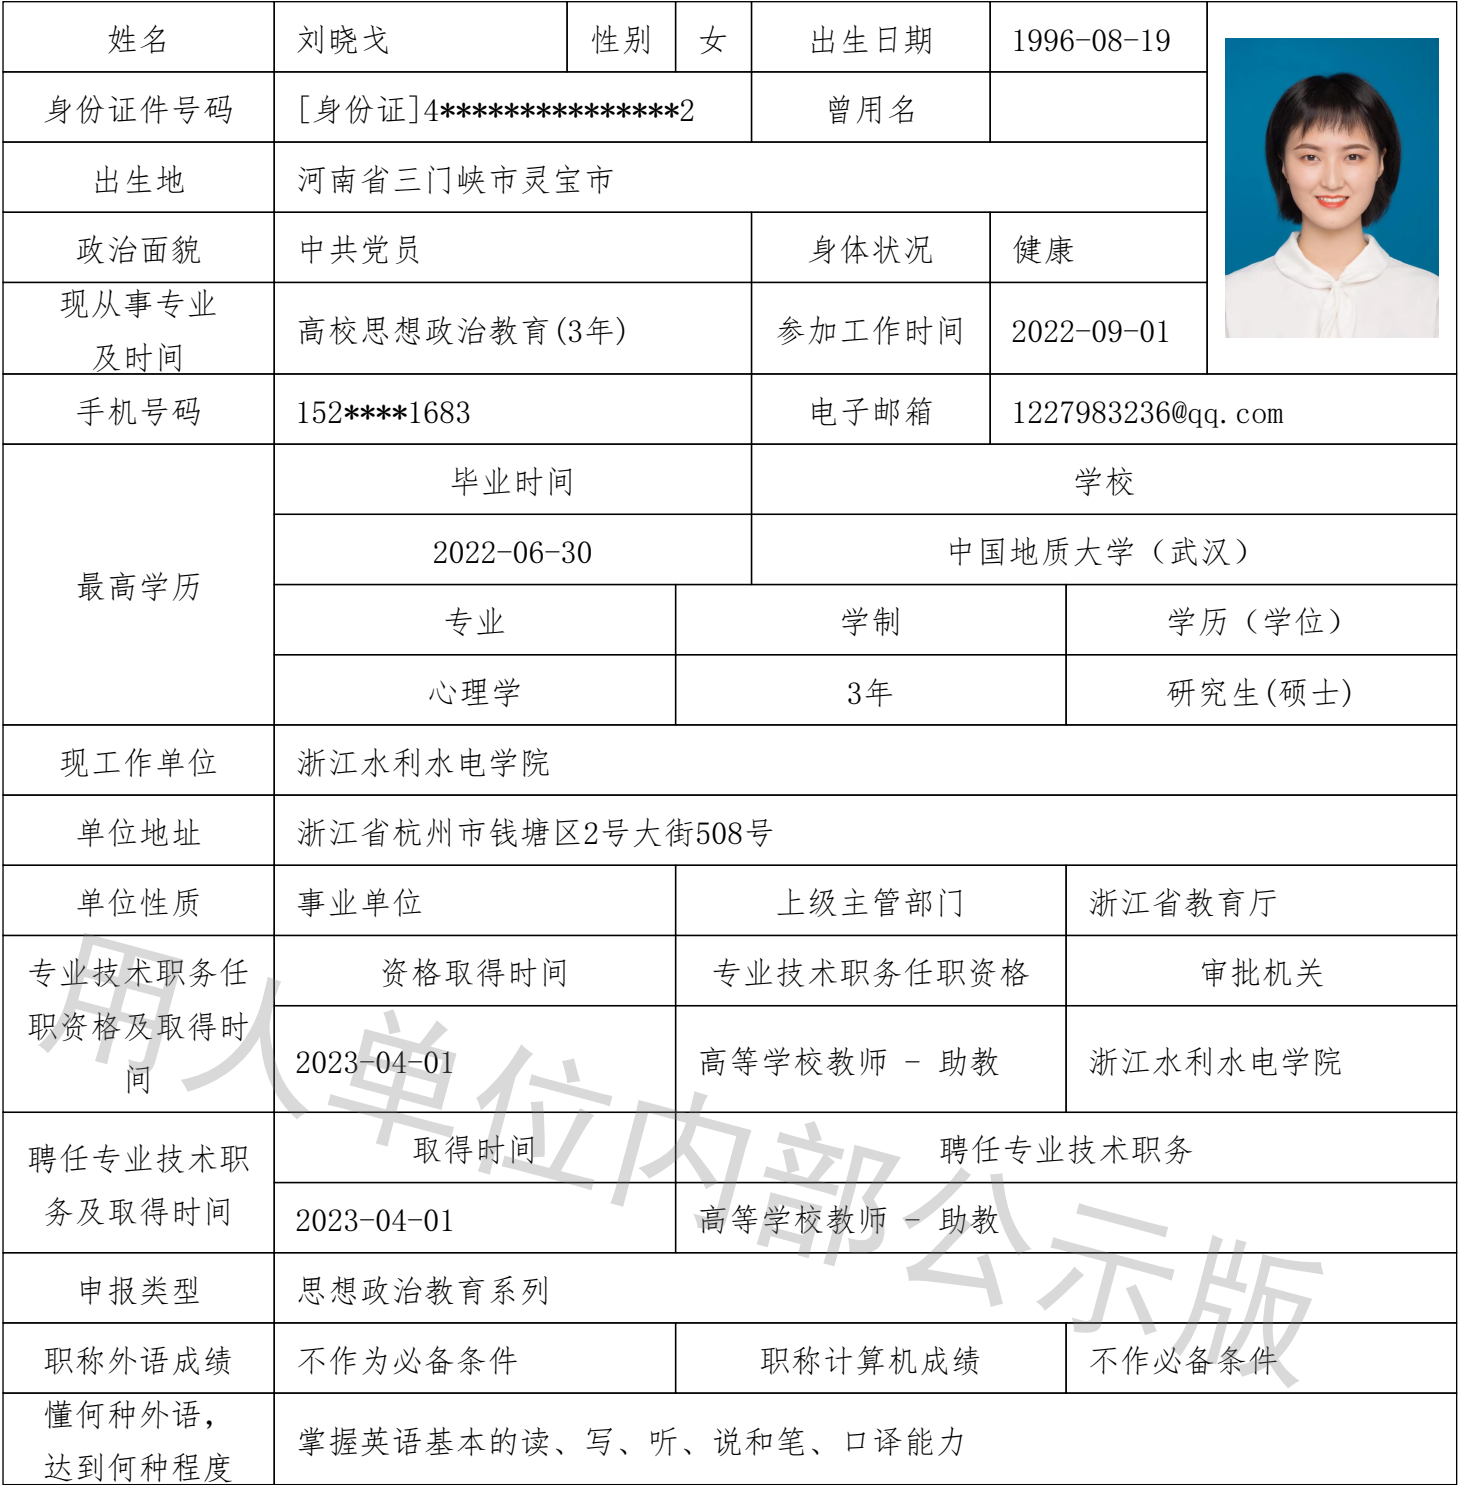 姓名 刘晓戈 性别 女 出生日期 1996-08-19
身份证件号码 [身份证]4***************2 曾用名
出生地 河南省三门峡市灵宝市
政治面貌 中共党员 身体状况 健康
现从事专业
及时间
高校思想政治教育(3年) 参加工作时间 2022-09-01
手机号码 152****1683 电子邮箱 1227983236@qq.com
最高学历
毕业时间 学校
2022-06-30 中国地质大学（武汉）
专业 学制 学历（学位）
心理学 3年 研究生(硕士)
现工作单位 浙江水利水电学院
单位地址 浙江省杭州市钱塘区2号大街508号
单位性质 事业单位 上级主管部门 浙江省教育厅
专业技术职务任
职资格及取得时
间
资格取得时间 专业技术职务任职资格 审批机关
2023-04-01 高等学校教师 - 助教 浙江水利水电学院
聘任专业技术职
务及取得时间
取得时间 聘任专业技术职务
2023-04-01 高等学校教师 - 助教
申报类型 思想政治教育系列
职称外语成绩 不作为必备条件 职称计算机成绩 不作必备条件
懂何种外语，
达到何种程度
掌握英语基本的读、写、听、说和笔、口译能力
用人单位内部公示版